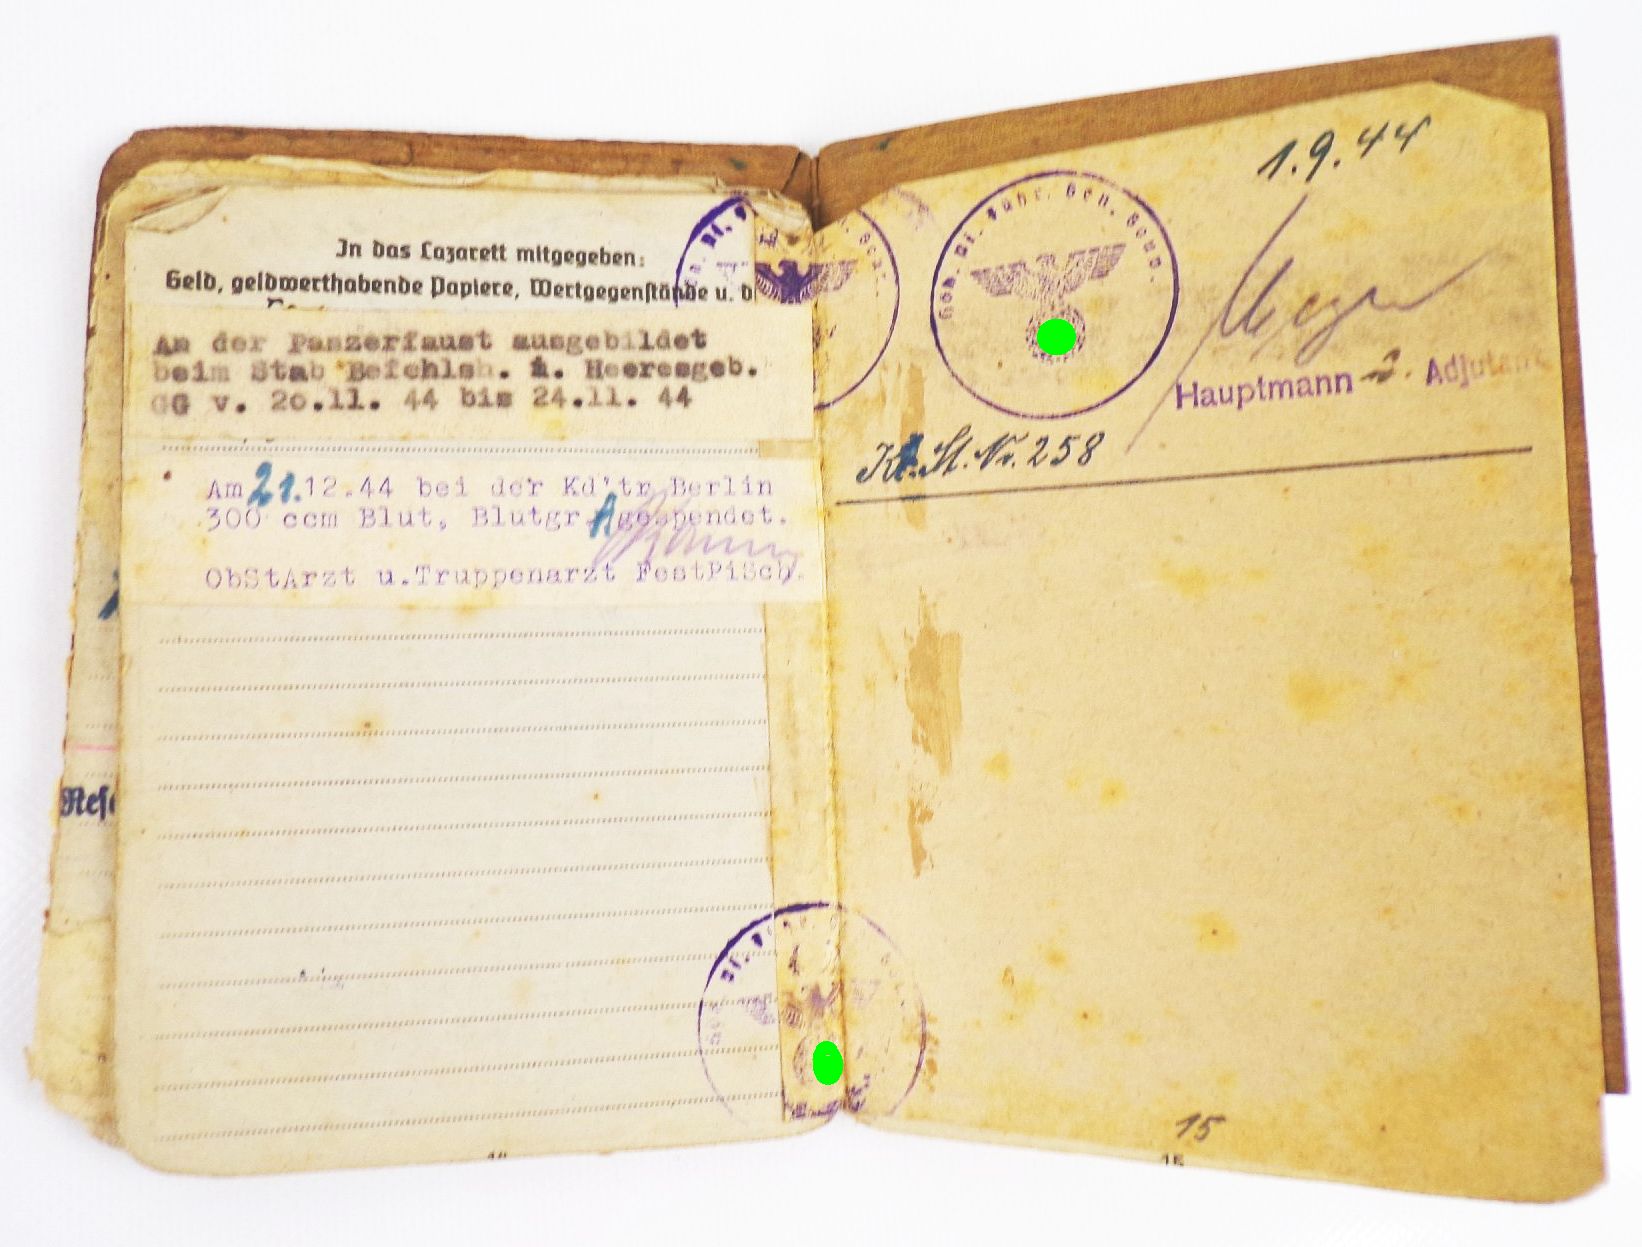 In das Lazarett mitgegeben:
Geld, geldwerthabende Papiere, Wertgegenstände u. d
An der Panzerfaust ausgebildet
beim Stab Befehlsh. i. Heeresgeb.
GG v. 20.11. 44 bis 24.11. 44
Am 21.12.44 bei der Kd'tr Berlin
300 ccm Blut, Blutgr. A gespendet.
ObStArzt u.Truppenarzt FestPiSch.
Rese
1.9.44
Hauptmann u. Adjutant
K.St.Nr. 258
15
15